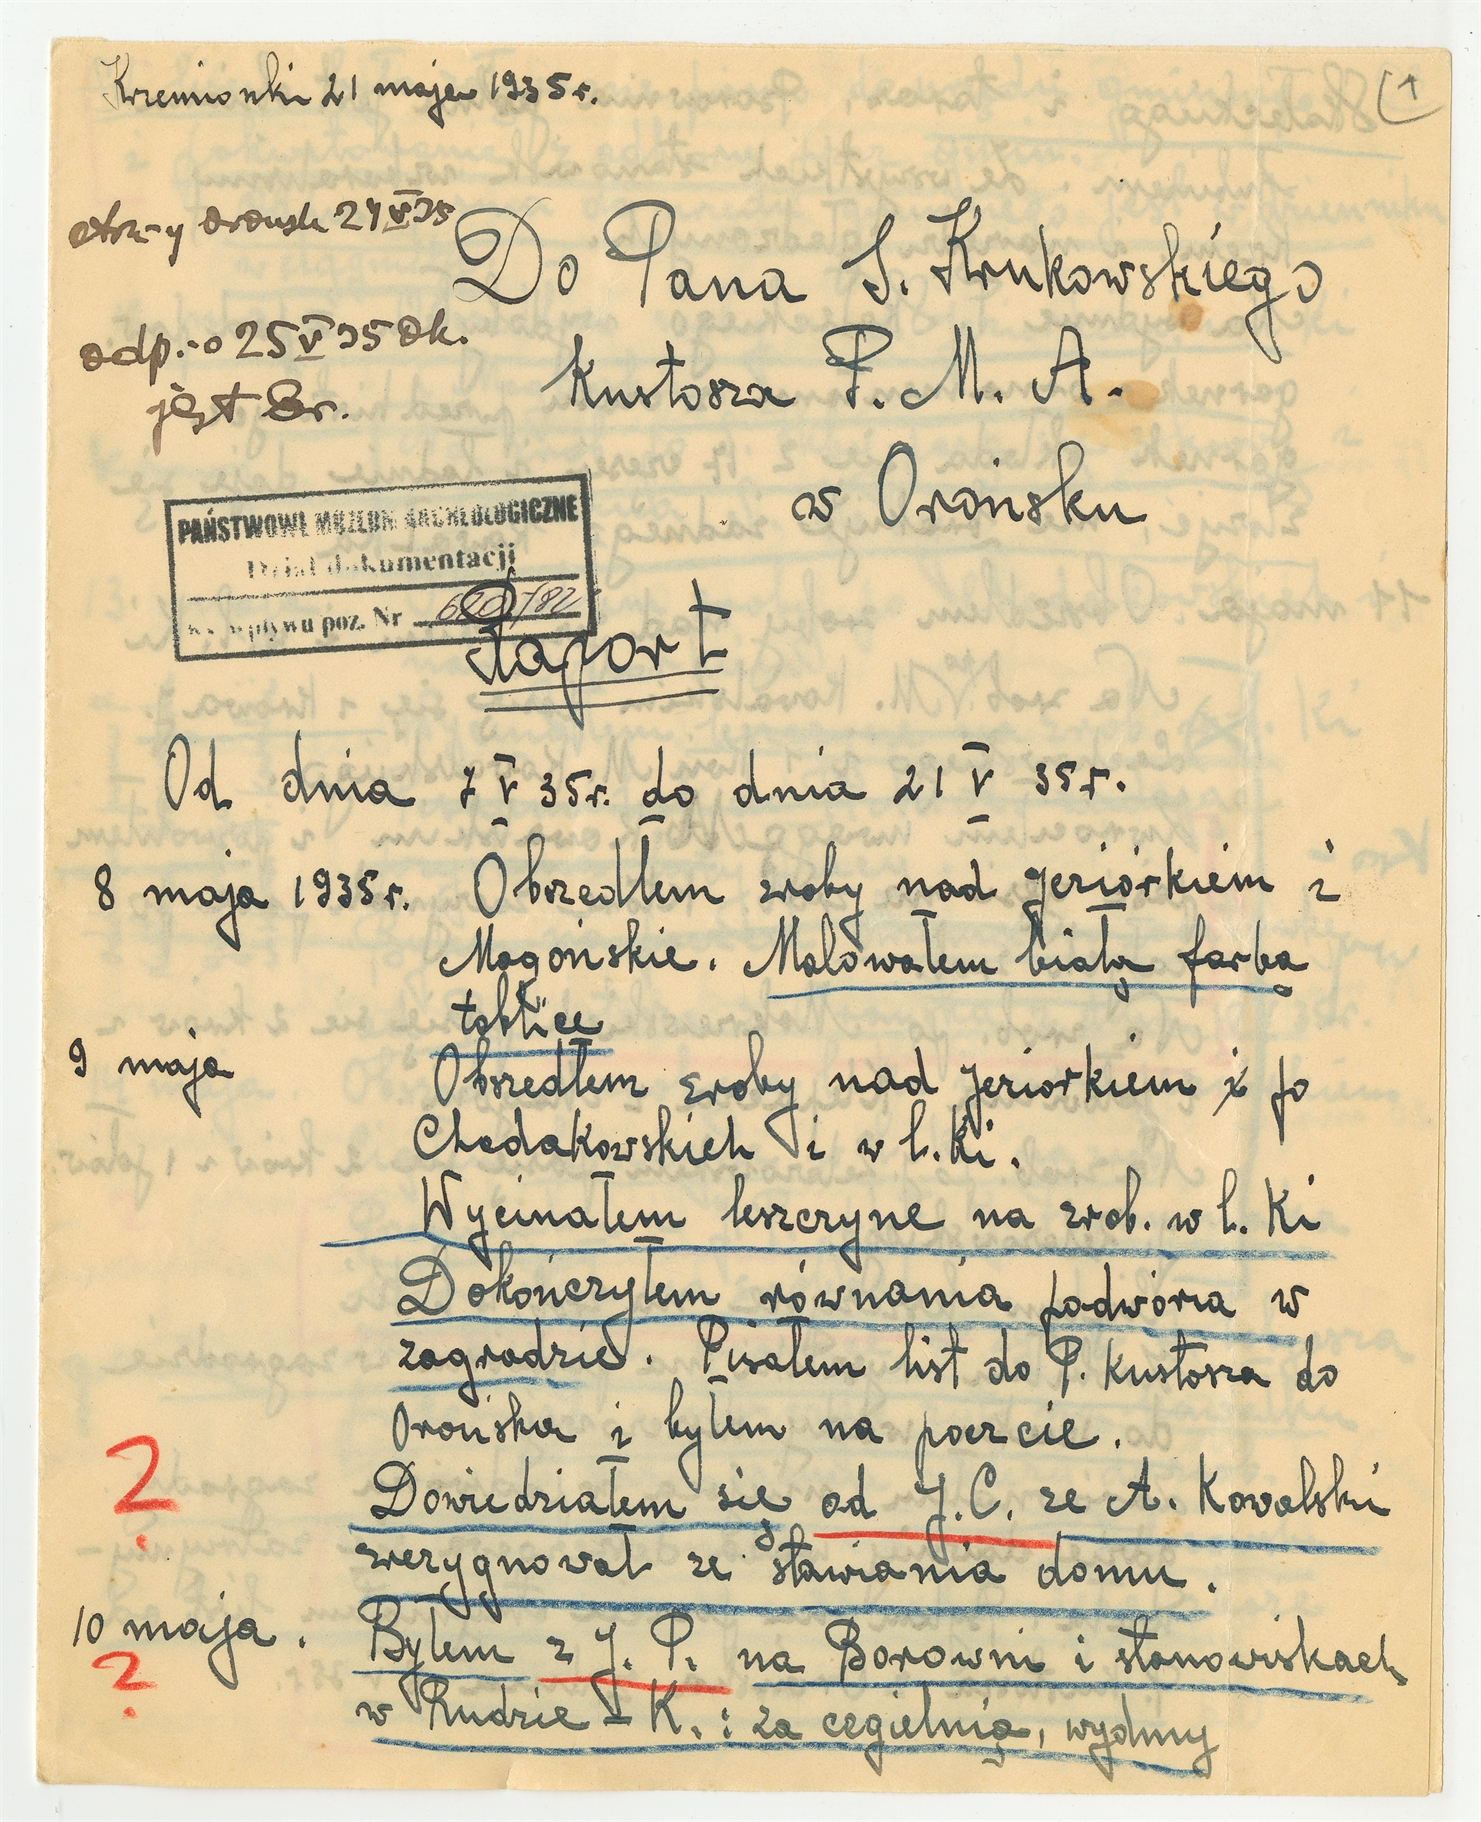 Krzemionki 21 maja 1935 r.
1
24 V 35
Do Pana S. Krukowskiego
odp. 25 V 35 Ok.
Kustosza P. M. A.
jest Br.
w Orońsku
PAŃSTWOWE MUZEUM ARCHEOLOGICZNE
Dział dokumentacji
wpływu poz. Nr /82
Raport
Od dnia 7 V 35 r. do dnia 21 V 35 r.
8 maja 1935 r. Obszedłem zroby nad Jeziórkiem i
Magońskie. Malowałem białą farbą
tablice
9 maja Obszedłem zroby nad Jeziorkiem i po
Chodakowskich i w l. Ki.
Wycinałem leszczyne na zrob. w l. Ki
Dokończyłem równania podwórza w
zagrodzie. Pisałem list do P. Kustosza do
Orońska i byłem na poczcie.
? Dowiedziałem się od J. C. ze A. Kowalski
zrezygnował ze stawiania domu.
10 maja. Byłem z J. P. na Borowni i stanowiskach
? w Rudzie – K. : za cegielnią, wydmy